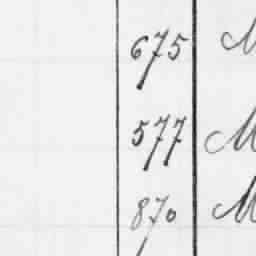 675 M
577 M
870 M